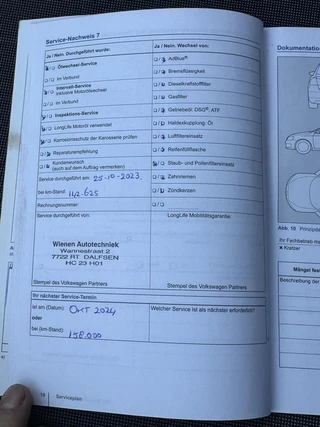 Service-Nachweis 7
Ja / Nein. Durchgeführt wurde:
Ja / Nein. Wechsel von:
Ölwechsel-Service
AdBlue®
im Verbund
Bremsflüssigkeit
Intervall-Service
inklusive Motorölwechsel
Dieselkraftstofffilter
im Verbund
Gasfilter
Inspektions-Service
Getriebeöl: DSG®, ATF
LongLife Motoröl verwendet
Haldexkupplung: Öl
Korrosionsschutz der Karosserie prüfen
Luftfiltereinsatz
Reparaturempfehlung
Reifenfüllflasche
Kundenwunsch
(auch auf dem Auftrag vermerken)
Staub- und Pollenfiltereinsatz
Service durchgeführt am: 25-10-2023
Zahnriemen
bei km-Stand: 142.625
Zündkerzen
Rechnungsnummer:
Service durchgeführt von:
LongLife Mobilitätsgarantie:
Wienen Autotechniek
Wannestraat 2
7722 RT DALFSEN
HC 23 H01
Stempel des Volkswagen Partners
Stempel des Volkswagen Partners
Ihr nächster Service-Termin
ist am (Datum): OKT 2024
Welcher Service ist als nächster erforderlich?
oder
bei (km-Stand):
158.000
18 Serviceplan
Dokumentation
Abb. 18
Ihr Fachbetrieb
× Kratzer
Mängel
Beschreibung der